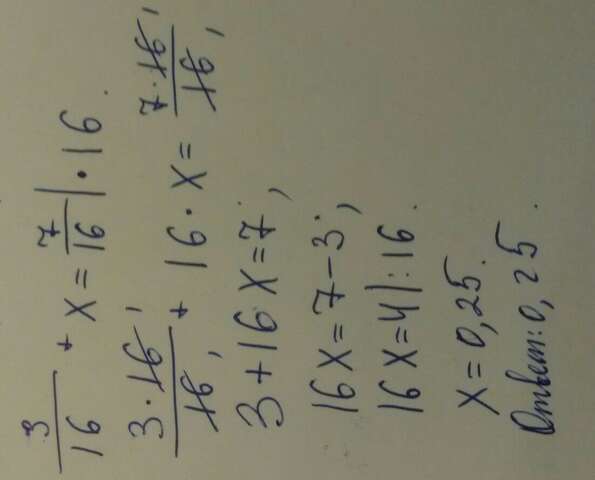 3/16 + x = 7/16 | · 16.
3·16/16 + 16·x = 7·16/16
3 + 16x = 7;
16x = 7 - 3;
16x = 4 | : 16.
x = 0,25.
Ответ: 0,25.